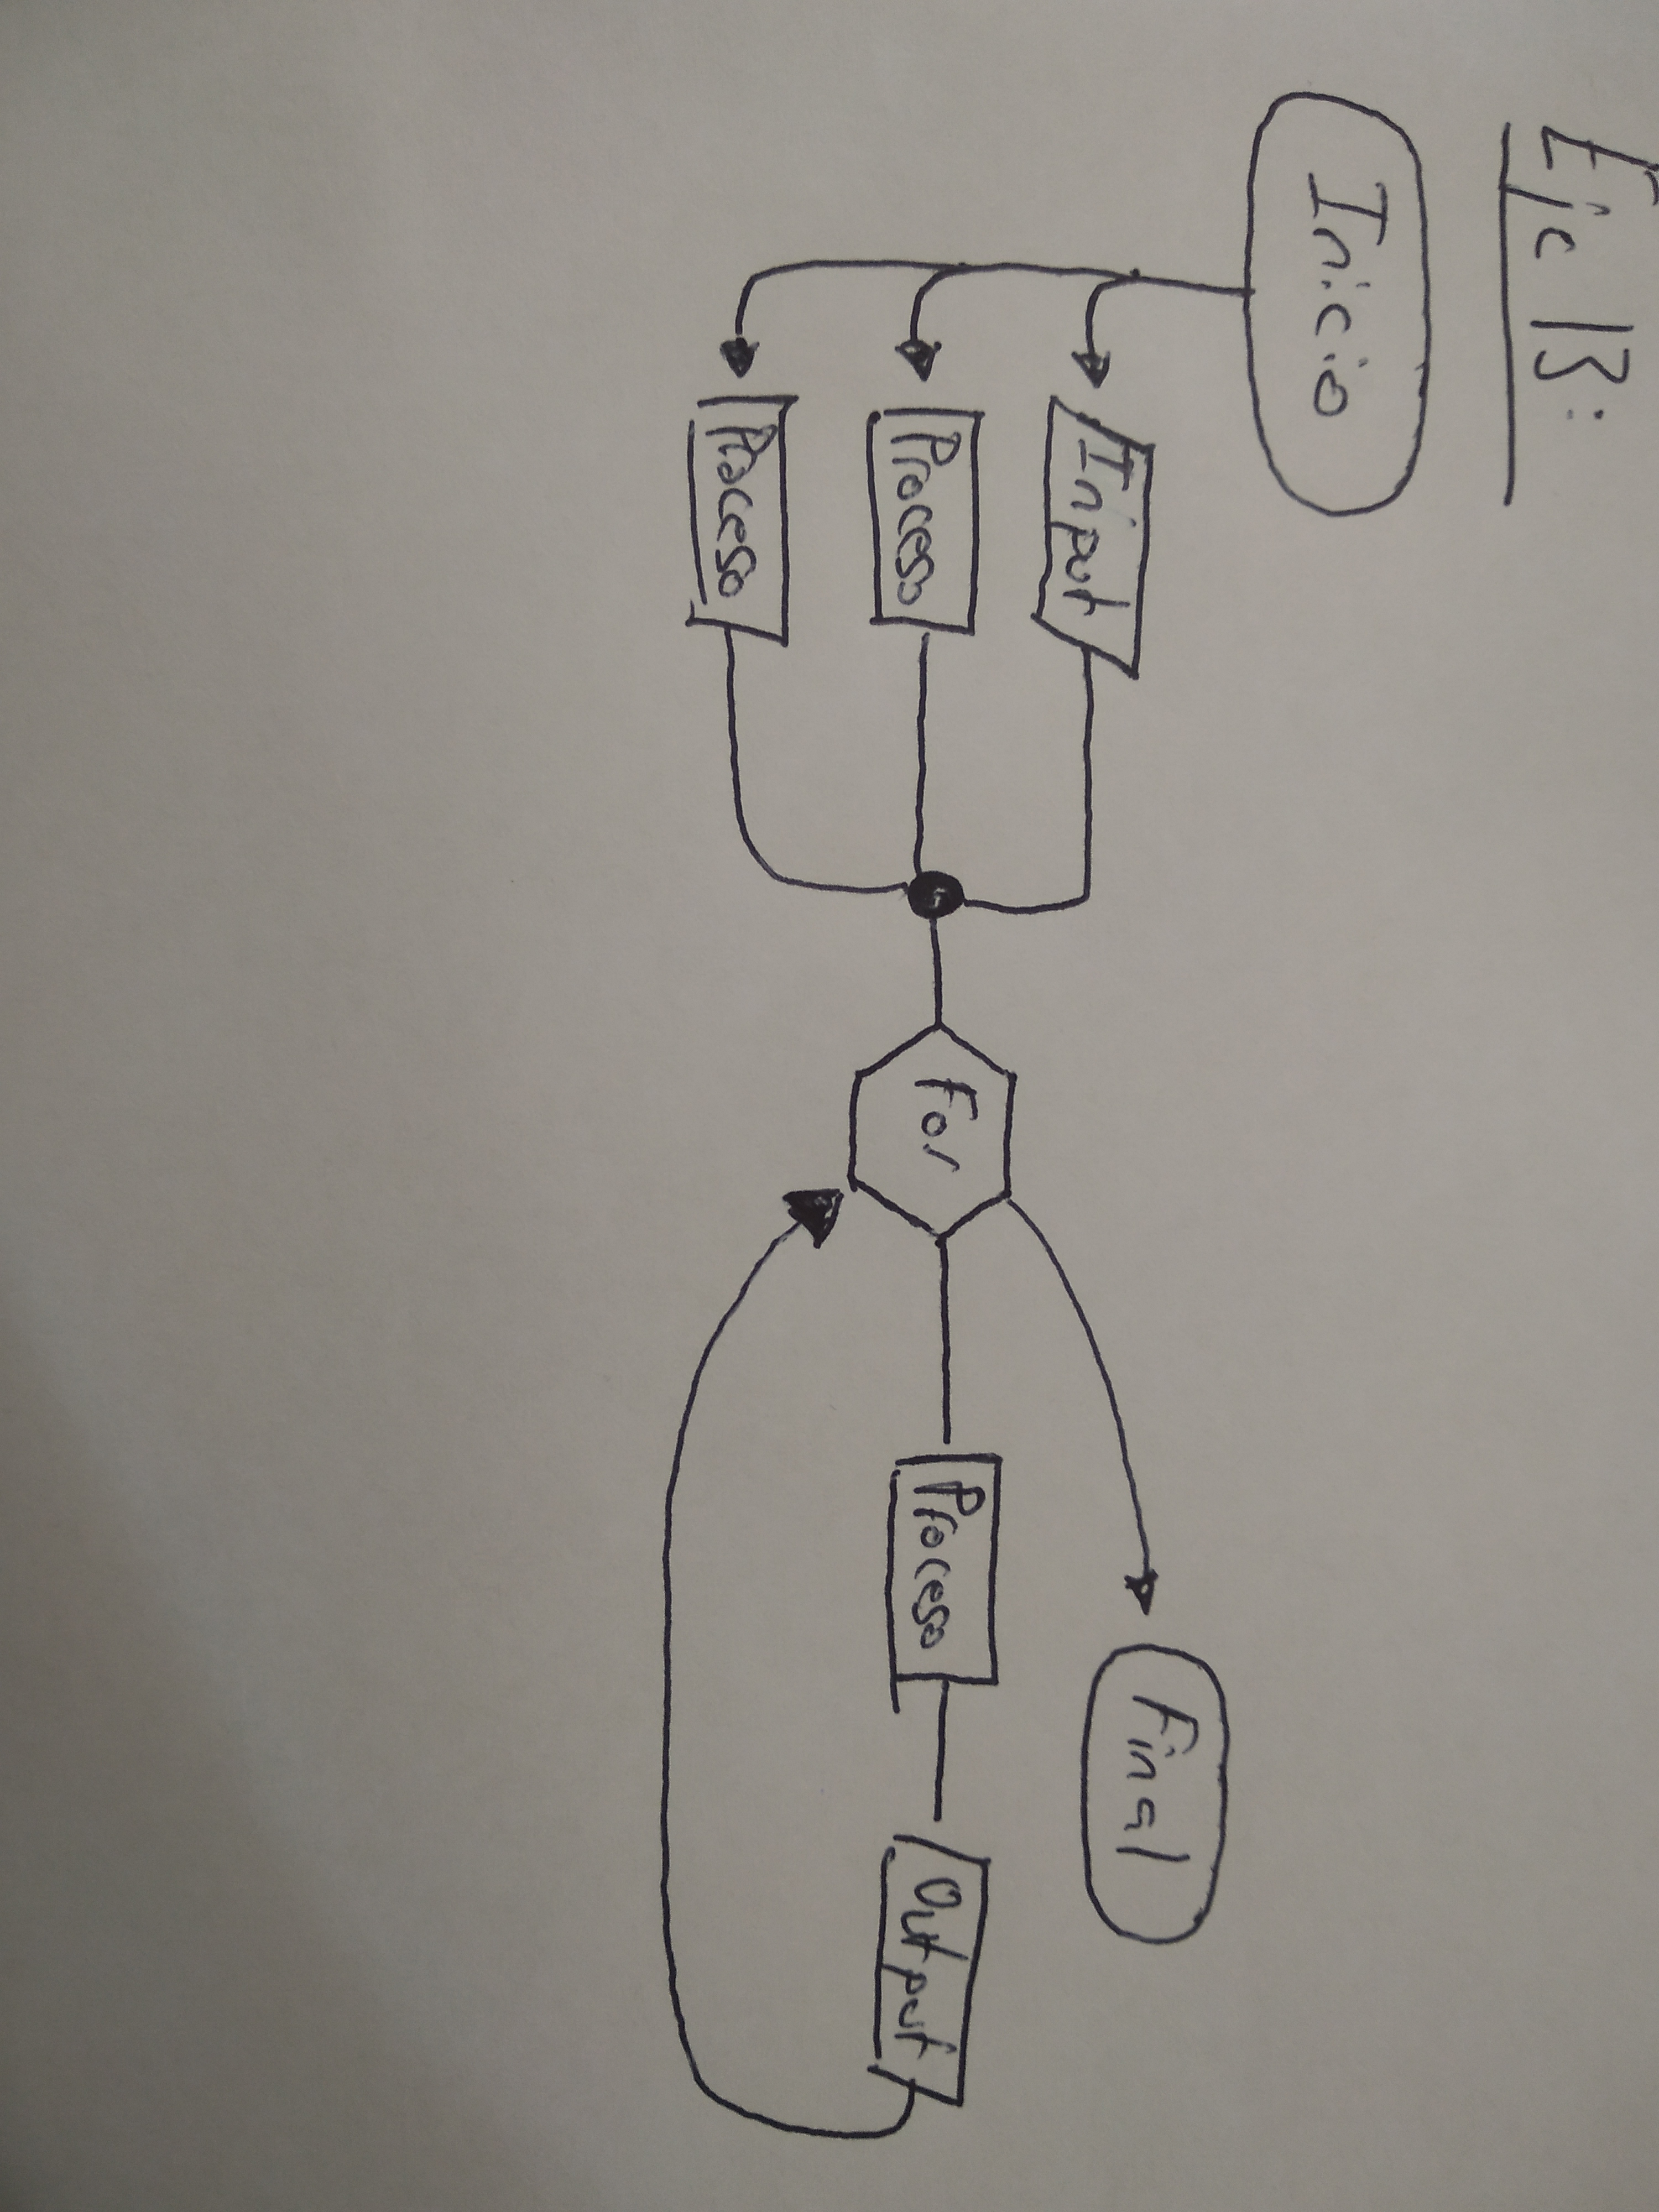 Ejc 13:
Inicio
Input
Proceso
Proceso
For
Final
Proceso
Output